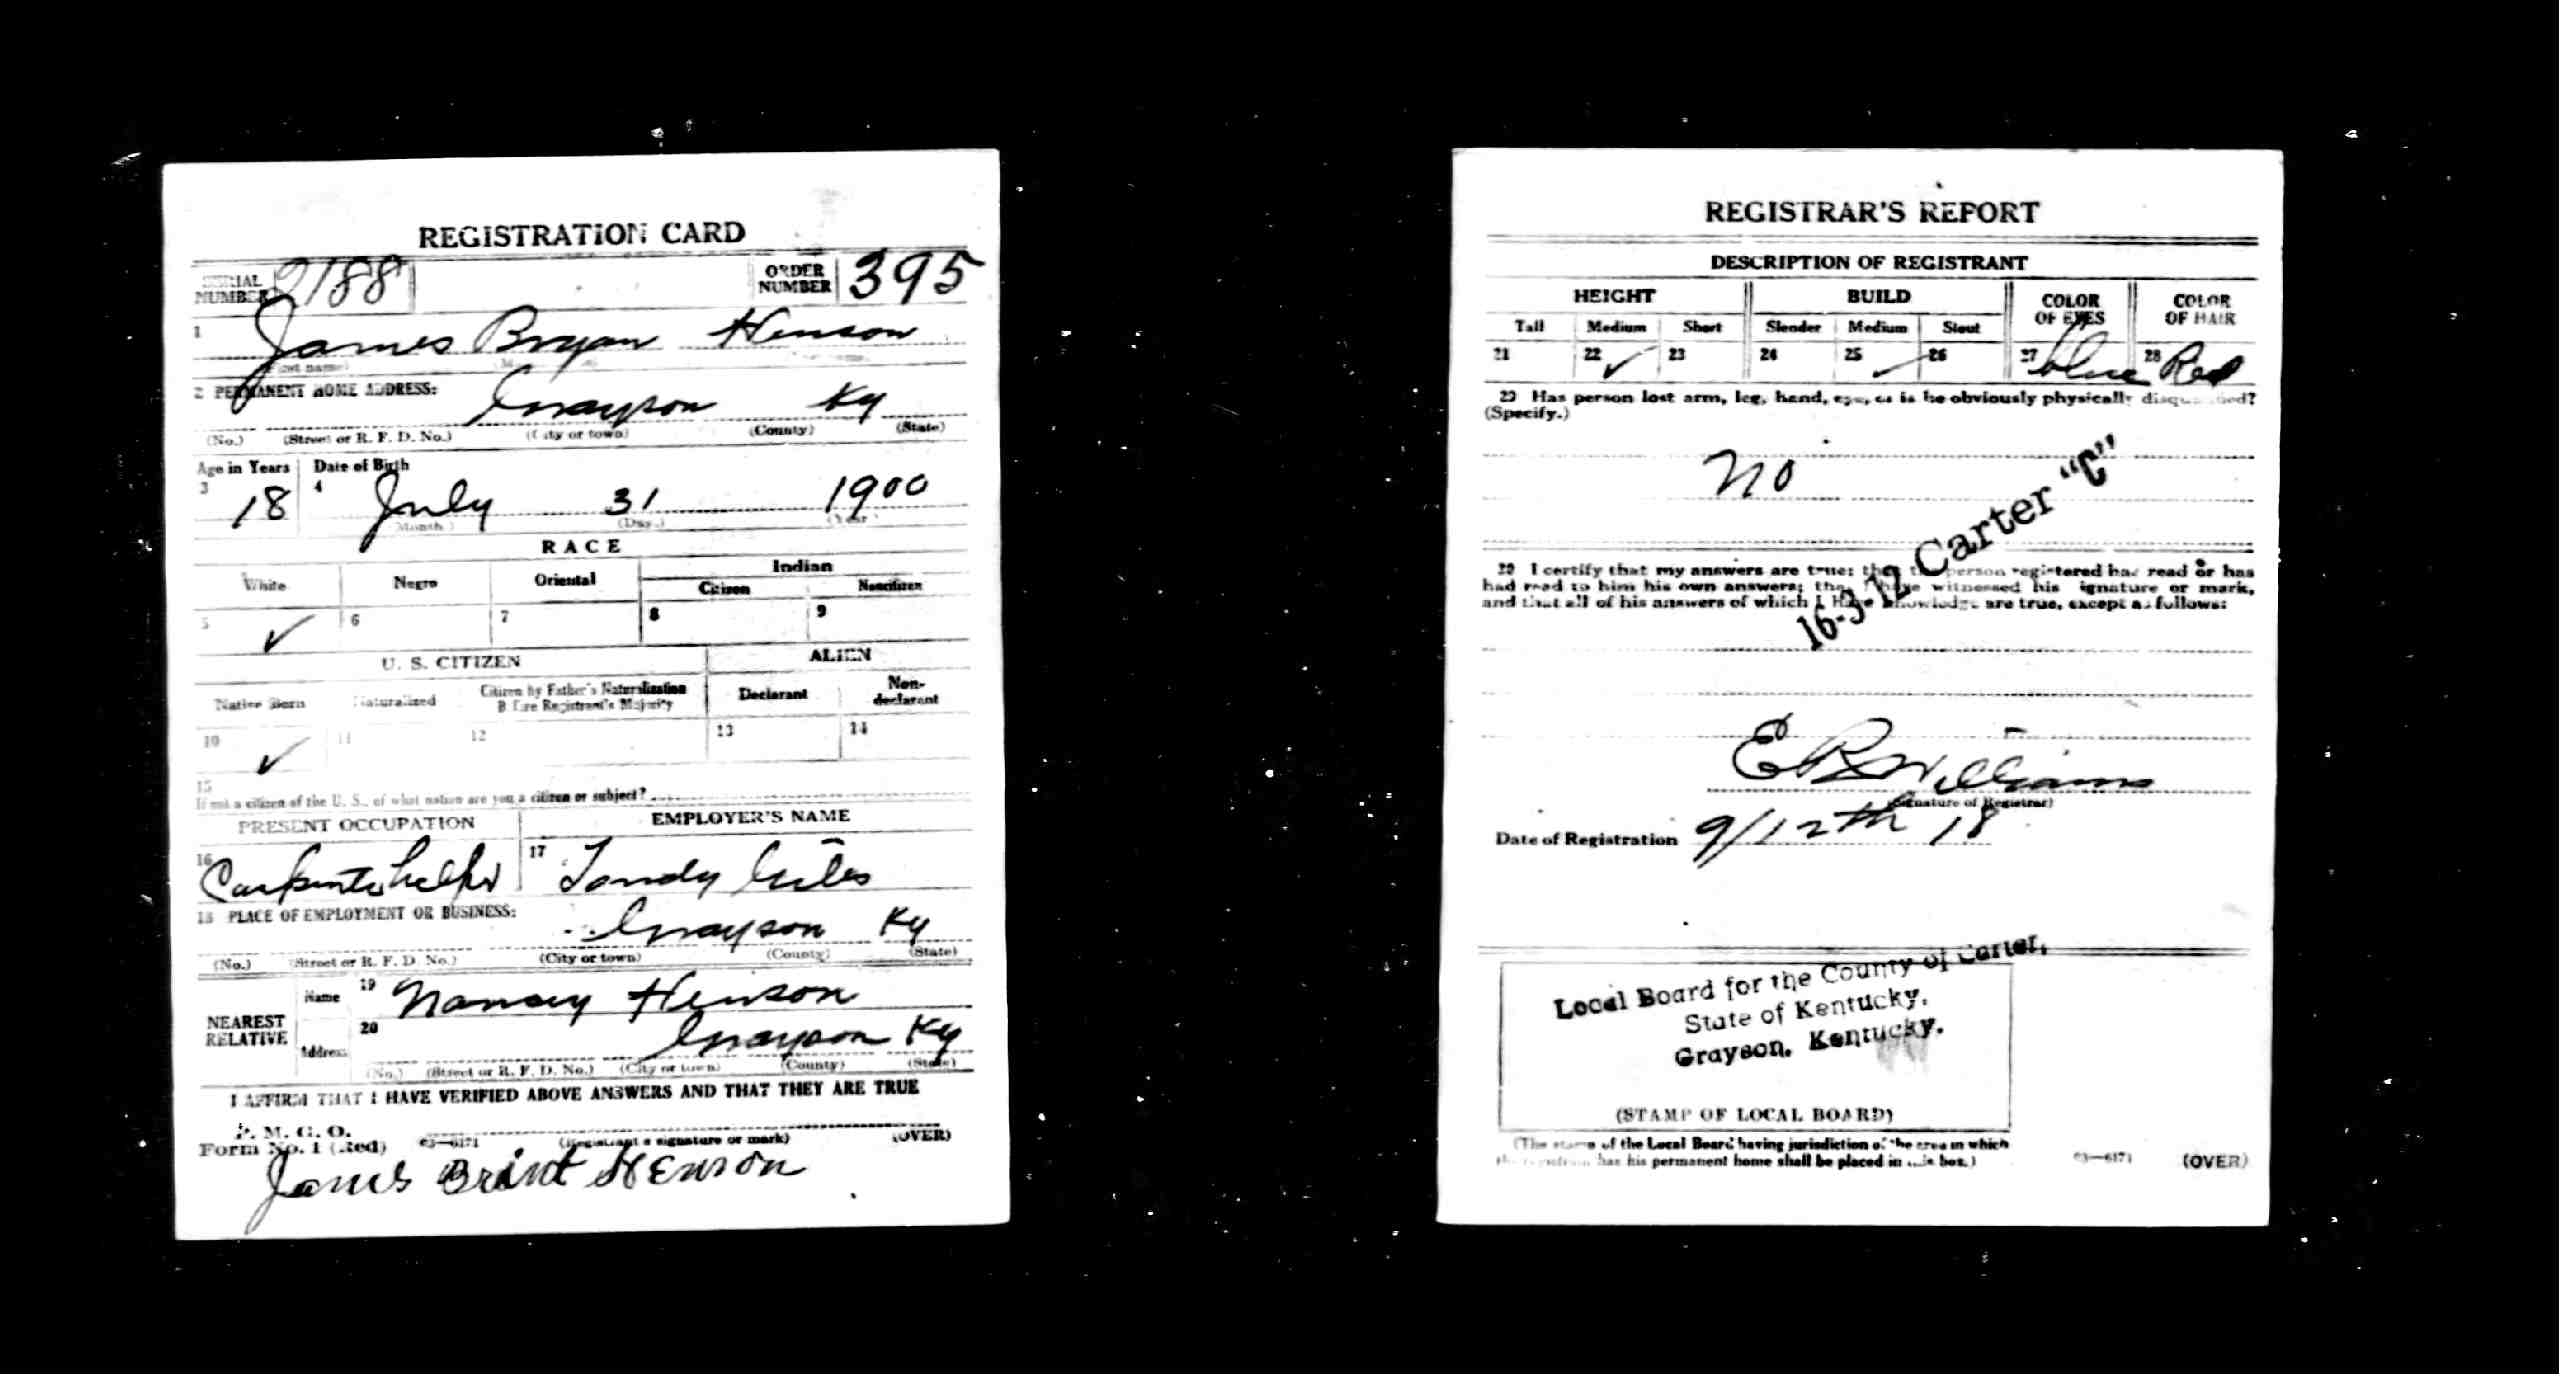 REGISTRATION CARD
SERIAL NUMBER 2188 ORDER NUMBER 395
1 James Bryan Henson
(First name)
2 PERMANENT HOME ADDRESS: Grayson Ky
(No.) (Street or R. F. D. No.) (City or town) (County) (State)
Age in Years Date of Birth
3 18 4 July 31 1900
(Month.) (Day.) (Year.)
RACE
White Negro Oriental Indian
Citizen Noncitizen
5 ✓ 6 7 8 9
U. S. CITIZEN ALIEN
Native Born Naturalized Citizen by Father's Naturalization Before Registrant's Majority Declarant Non-declarant
10 ✓ 11 12 13 14
15
If not a citizen of the U. S., of what nation are you a citizen or subject?
PRESENT OCCUPATION EMPLOYER'S NAME
16 Carpenter helper 17
18 PLACE OF EMPLOYMENT OR BUSINESS:
Grayson Ky
(No.) (Street or R. F. D. No.) (City or town) (County) (State)
NEAREST RELATIVE
Name 19 Nancy Henson
Address 20 Grayson Ky
(No.) (Street or R. F. D. No.) (City or town) (County) (State)
I AFFIRM THAT I HAVE VERIFIED ABOVE ANSWERS AND THAT THEY ARE TRUE
P. M. G. O.
Form No. 1 (Red) 03—6171 (Registrant's signature or mark) (OVER)
James Brint Henson
REGISTRAR'S REPORT
DESCRIPTION OF REGISTRANT
HEIGHT BUILD COLOR OF EYES COLOR OF HAIR
Tall Medium Short Slender Medium Stout
21 22 ✓ 23 24 25 ✓ 26 27 blue 28 Red
29 Has person lost arm, leg, hand, eye, or is he obviously physically disqualified?
(Specify.)
no
16-3-12 Carter "C"
30 I certify that my answers are true; that the person registered has read or has
had read to him his own answers; that I have witnessed his signature or mark,
and that all of his answers of which I have knowledge are true, except as follows:
E R Williams
(Signature of Registrar)
Date of Registration 9/12th 18
Local Board for the County of Carter,
State of Kentucky.
Grayson, Kentucky.
(STAMP OF LOCAL BOARD)
(The stamp of the Local Board having jurisdiction of the area in which
the registrant has his permanent home shall be placed in this box.)
03—6171 (OVER)